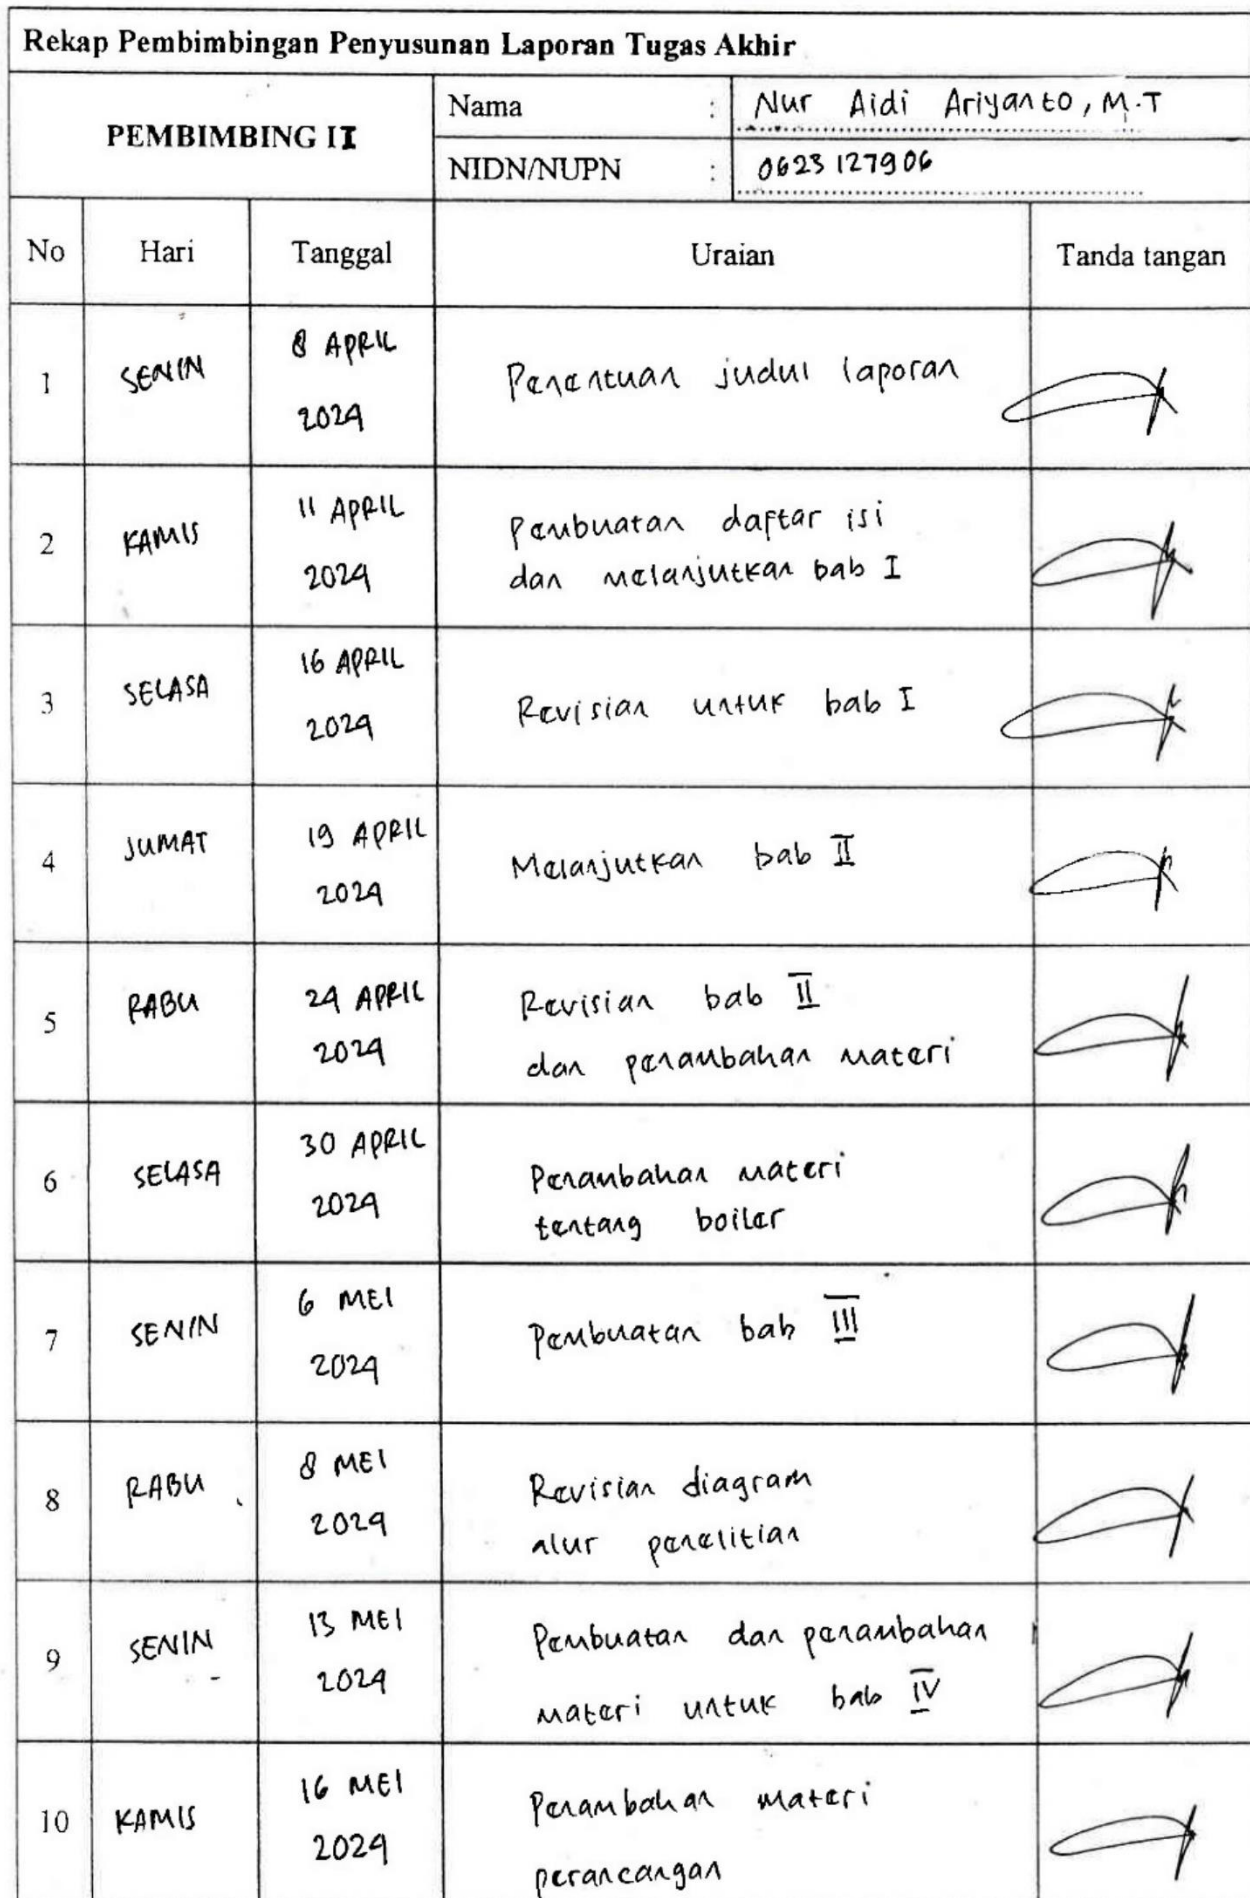 Rekap Pembimbingan Penyusunan Laporan Tugas Akhir
PEMBIMBING II
Nama : Nur Aidi Ariyanto, M.T
NIDN/NUPN : 0623127906
No Hari Tanggal Uraian Tanda tangan
1 SENIN 8 APRIL 2024 Penentuan judul laporan
2 KAMIS 11 APRIL 2024 Pembuatan daftar isi
dan melanjutkan bab I
3 SELASA 16 APRIL 2024 Revisian untuk bab I
4 JUMAT 19 APRIL 2024 Melanjutkan bab II
5 RABU 24 APRIL 2024 Revisian bab II
dan penambahan materi
6 SELASA 30 APRIL 2024 Penambahan materi
tentang boiler
7 SENIN 6 MEI 2024 Pembuatan bab III
8 RABU 8 MEI 2024 Revisian diagram
alur penelitian
9 SENIN 13 MEI 2024 Pembuatan dan penambahan
materi untuk bab IV
10 KAMIS 16 MEI 2024 Penambahan materi
perancangan